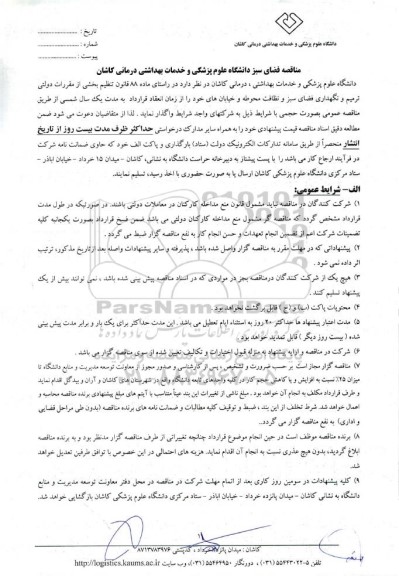 تاریخ :
شماره :
پیوست :
دانشگاه علوم پزشکی و خدمات بهداشتی درمانی کاشان
مناقصه فضای سبز دانشگاه علوم پزشکی و خدمات بهداشتی درمانی کاشان
دانشگاه علوم پزشکی و خدمات بهداشتی ، درمانی کاشان در نظر دارد در راستای ماده ۸۸ قانون تنظیم بخشی از مقررات دولتی
ترمیم و نگهداری فضای سبز و نظافت محوطه و خیابان های خود را از زمان انعقاد قرارداد به مدت یک سال شمسی از طریق
مناقصه عمومی بصورت حجمی با شرایط ذیل به شرکتهای واجد شرایط واگذار نماید . لذا از متقاضیان دعوت می شود ضمن
مطالعه دقیق اسناد مناقصه قیمت پیشنهادی خود را به همراه سایر مدارک درخواستی حداکثر ظرف مدت بیست روز از تاریخ
انتشار منحصراً از طریق سامانه تدارکات الکترونیک دولت (ستاد) بارگذاری و پاکت الف خود که حاوی ضمانت نامه شرکت
در فرآیند ارجاع کار می باشد را با پست پیشتاز به دبیرخانه حراست دانشگاه به نشانی، کاشان - میدان ۱۵ خرداد - خیابان اباذر -
ستاد مرکزی دانشگاه علوم پزشکی کاشان ارسال یا به صورت حضوری با اخذ رسید، تسلیم نمایند.
الف- شرایط عمومی:
۱) شرکت کنندگان در مناقصه نباید مشمول قانون منع مداخله کارکنان در معاملات دولتی باشند. در صورتیکه در طول مدت
قرارداد مشخص گردد که مناقصه گر مشمول منع مداخله کارکنان دولتی می باشد ضمن فسخ قرارداد بصورت یکجانبه کلیه
تضمینات شرکت اعم از تضمین انجام تعهدات و حسن انجام کار به نفع مناقصه گزار ضبط می گردد .
۲) پیشنهاداتی که در مهلت مقرر به مناقصه گزار واصل شده باشد ، پذیرفته و سایر پیشنهادات واصله بعد ازتاریخ مذکور، ترتیب
اثر داده نمی شود .
۳) هیچ یک از شرکت کنندگان درمناقصه بجز در مواردی که در اسناد مناقصه پیش بینی شده باشد ، نمی توانند بیش از یک
پیشنهاد تسلیم کنند .
۴) محتویات پاکت (ب) و (ج) قابل برگشت نخواهد بود.
۵) مدت اعتبار پیشنهاد ها حداکثر ۲۰ روز به استثناء ایام تعطیل می باشد . این مدت حداکثر برای یک بار و برابر مدت پیش بینی
شده ( بیست روز دیگر ) قابل تمدید خواهد بود .
۶) شرکت در مناقصه و ارایه پیشنهاد به منزله قبول اختیارات و تکالیف تعیین شده از سوی مناقصه گزار می باشد .
۷) مناقصه گزار مجاز است بر حسب ضرورت و تشخیص ، پس از کارشناسی و صدور مجوز از معاونت توسعه مدیریت و منابع دانشگاه تا
میزان ۲۵٪ نسبت به افزایش و یا کاهش حجم کار در کلیه واحدهای تابعه دانشگاه واقع در شهرستان های کاشان و آران و بیدگل اقدام نماید
و طرف قرارداد مکلف به انجام آن خواهد بود. مبلغ ناشی از تغییرات این بند عیناً متناسب با آیتم های مبلغ پیشنهادی برنده مناقصه محاسبه و
اعمال خواهد شد. شرط تخلف از این بند ، ضبط و توقیف کلیه مطالبات و ضمانت نامه های برنده مناقصه (بدون طی مراحل قضایی
و اداری) به نفع مناقصه گزار می گردد..
۸) برنده مناقصه موظف است در حین انجام موضوع قرارداد چنانچه تغییراتی از طرف مناقصه گزار مدنظر بود و به برنده مناقصه
ابلاغ گردید، بدون هیچ عذری نسبت به انجام آن اقدام نماید. هزینه های احتمالی در این خصوص با توافق طرفین تعدیل خواهد
شد.
۹) کلیه پیشنهادات در سومین روز کاری بعد از اتمام مهلت شرکت در مناقصه در محل دفتر معاونت توسعه مدیریت و منابع
دانشگاه به نشانی کاشان - میدان پانزده خرداد - خیابان اباذر - ستاد مرکزی دانشگاه علوم پزشکی کاشان بازگشایی خواهد شد.
کاشان : میدان پانزده خرداد ، کدپستی ۸۷۱۳۷۸۳۹۷۶
تلفن ۵-۵۵۴۴۳۰۲۲ (۰۳۱)، دورنگار ۵۵۴۴۶۹۵۰ (۰۳۱)، وب سایت http://kaums.ac.ir